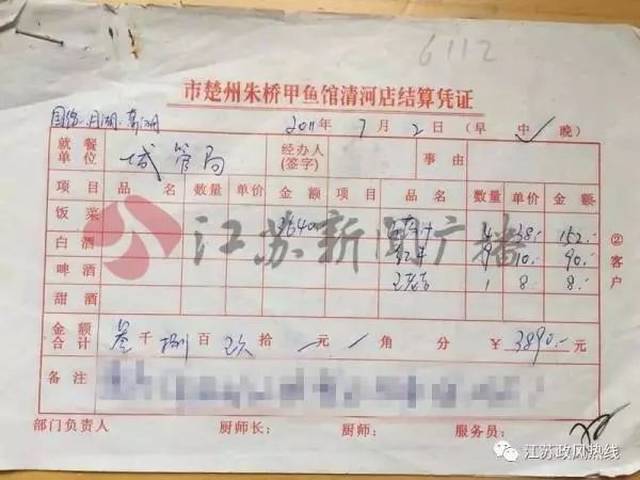 6112
市楚州朱桥甲鱼馆清河店结算凭证
2011年 7月 2日 (早 中✓ 晚)
就餐单位 城管局 经办人(签字) 事由
项目 品名 数量 单价 金额 项目 品名 数量 单价 金额
饭菜 3640 4 38.- 152.-
白酒 9 10.- 90.-
啤酒 王老吉 1 8.- 8.-
甜酒
金额合计 叁千捌百玖拾 元 角 分 ¥3890.- 元
备注
②客户
部门负责人 厨师长: 厨师: 服务员:
江苏新闻广播
江苏政风热线